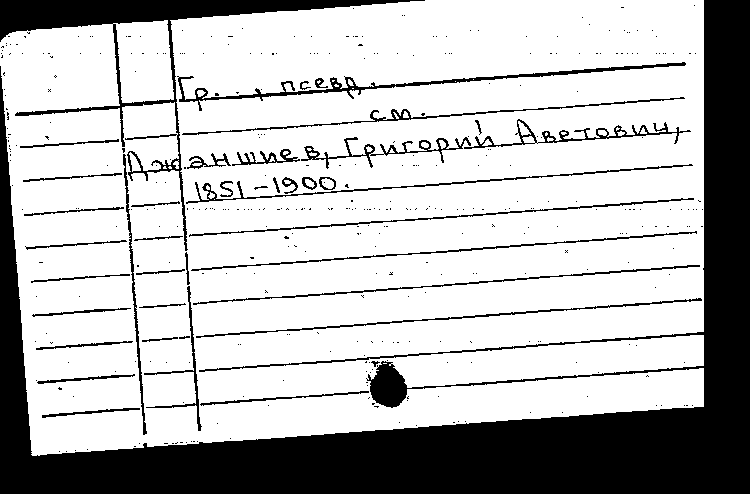 Гр..., псевд.
см.
Джаншиев, Григорий Аветович,
1851-1900.